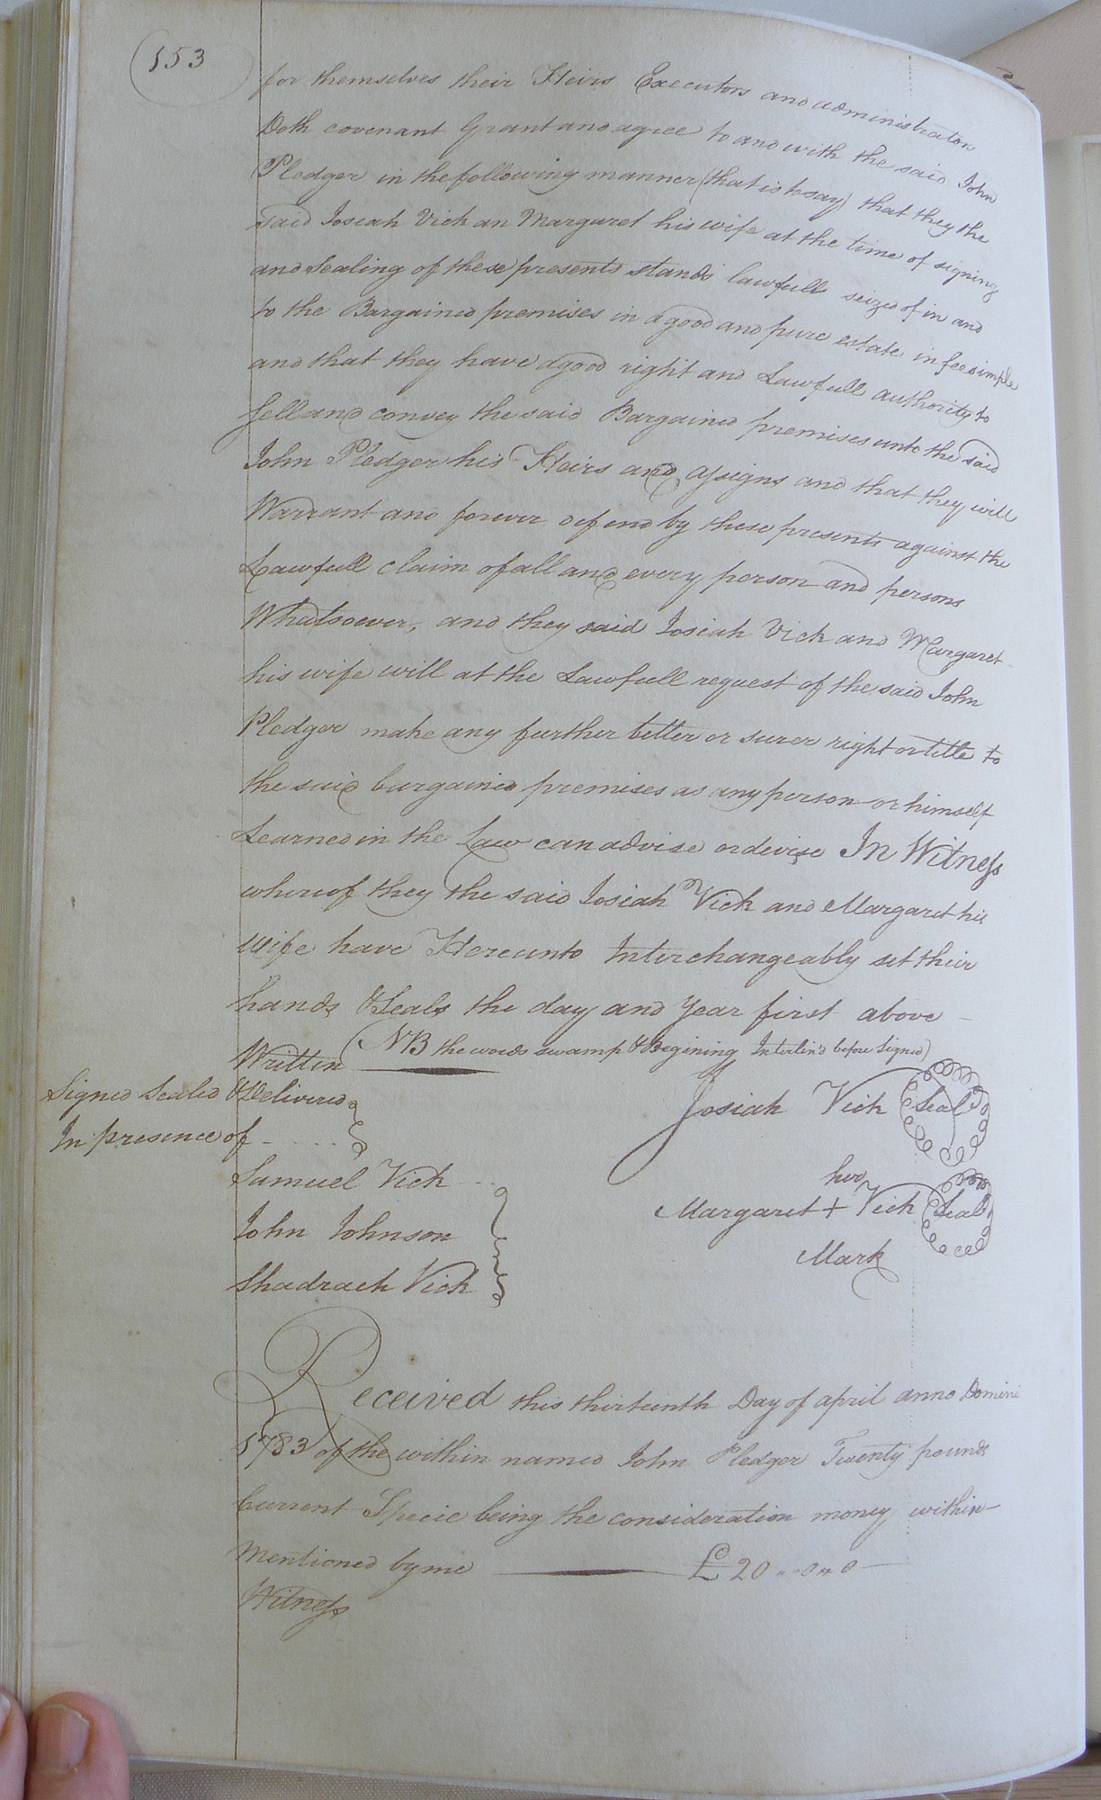 153
for themselves their Heirs Executors and administrators
Doth covenant Grant and agree to and with the said John
Pledger in the following manner (that is to say) that they the
said Josiah Vick an Margaret his wife at the time of signing
and sealing of these presents stands lawfull seized of in and
to the Bargained premises in a good and pure estate in fee simple
and that they have a good right and Lawfull authority to
sell and convey the said Bargained premises unto the said
John Pledger his Heirs and assigns and that they will
Warrant and forever defend by these presents against the
Lawfull claim of all and every person and persons
Whatsoever, and they said Josiah Vick and Margaret
his wife will at the Lawfull request of the said John
Pledger make any further better or surer right or title to
the said bargained premises as any person or himself
Learned in the Law can advise or devise In Witness
whereof they the said Josiah Vick and Margaret his
wife have Hereunto Interchangeably set their
hands & Seals the day and year first above
Written (NB the words swamp & Begining Interlin'd before Signed)
Signed Sealed & Delivered
In presence of
Josiah Vick Seal
Samuel Vick
John Johnson
Shadrach Vick
her
Margaret + Vick Seal
Mark
Received this thirteenth Day of april anno Domini
1783 of the within named John Pledger Twenty pounds
Current Specie being the consideration money within
Mentioned by me £ 20 " 0 " 0
Witness